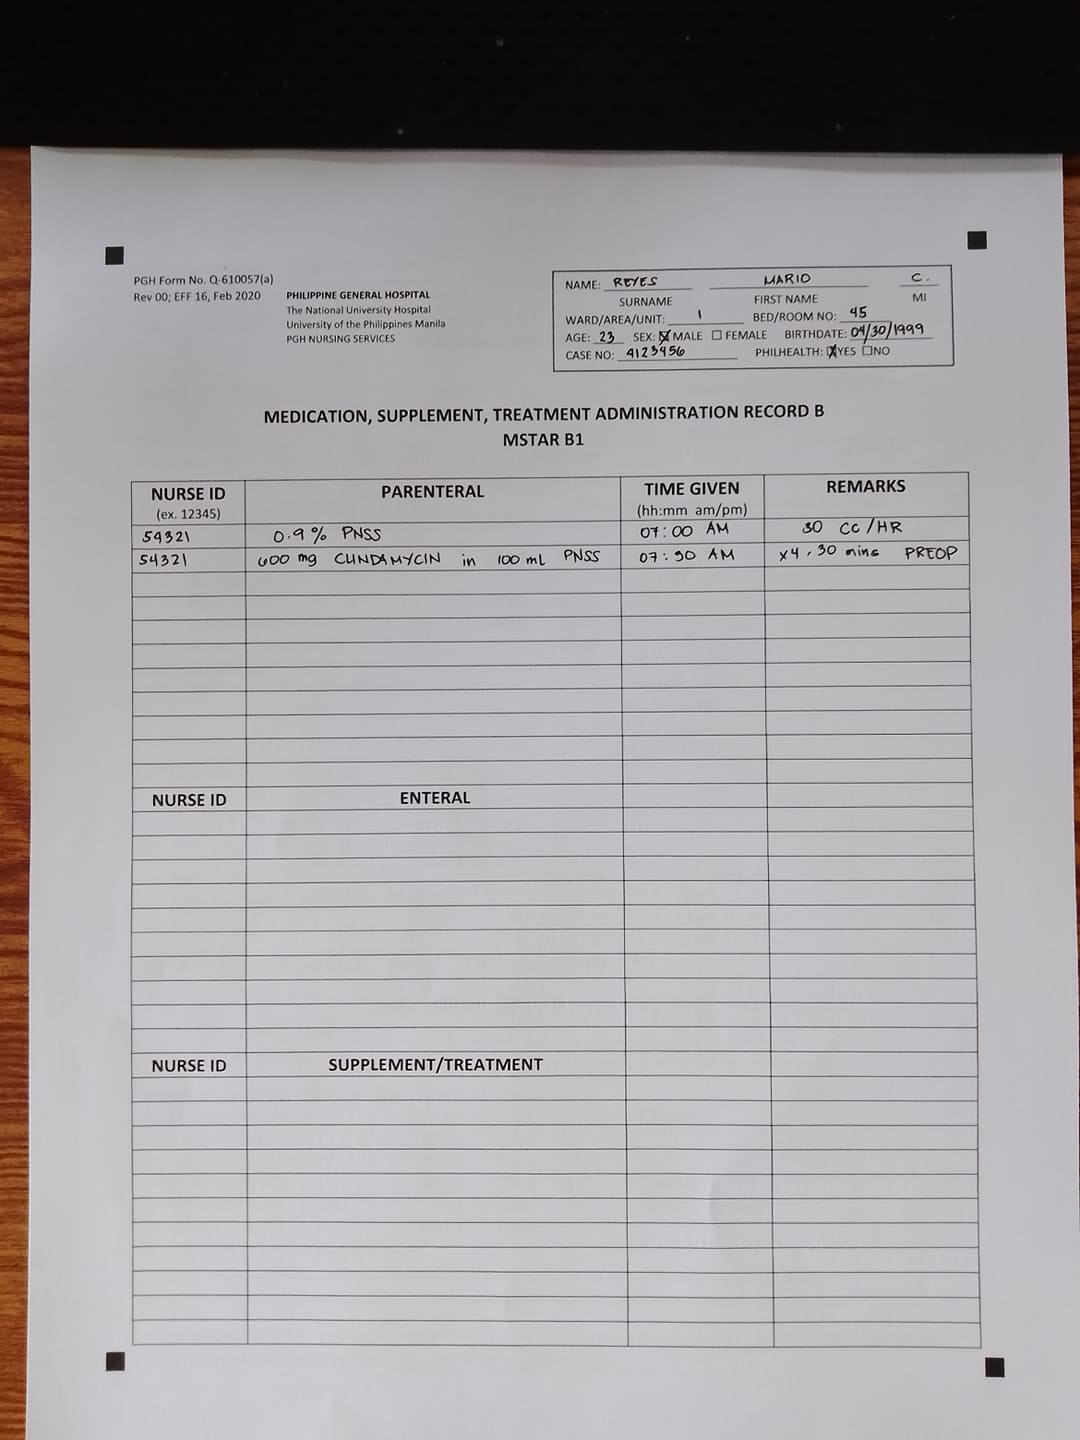 PGH Form No. Q-610057(a)
Rev 00; EFF 16, Feb 2020
PHILIPPINE GENERAL HOSPITAL
The National University Hospital
University of the Philippines Manila
PGH NURSING SERVICES
NAME: REYES MARIO C.
SURNAME FIRST NAME MI
WARD/AREA/UNIT: 1 BED/ROOM NO: 45
AGE: 23 SEX: ☒ MALE ☐ FEMALE BIRTHDATE: 04/30/1999
CASE NO: 4123456 PHILHEALTH: ☒YES ☐NO
MEDICATION, SUPPLEMENT, TREATMENT ADMINISTRATION RECORD B
MSTAR B1
NURSE ID PARENTERAL TIME GIVEN REMARKS
(ex. 12345) (hh:mm am/pm)
54321 0.9% PNSS 07:00 AM 30 CC/HR
54321 600 mg CLINDAMYCIN in 100 ml PNSS 07:30 AM x4, 30 mins PREOP
NURSE ID ENTERAL
NURSE ID SUPPLEMENT/TREATMENT